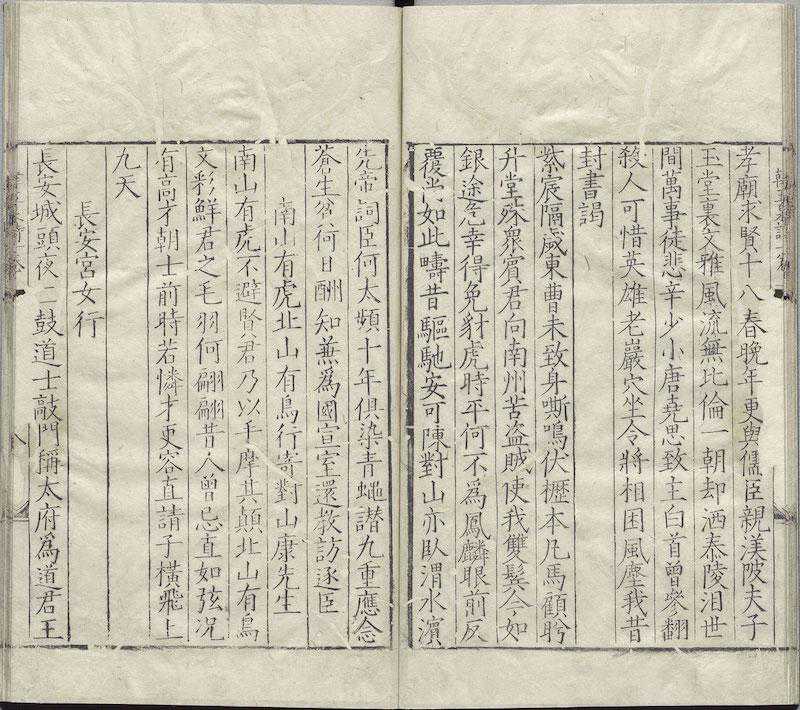 孝廟求賢十八春晚年更與儒臣親渼陂夫子
玉堂裏文雅風流無比倫一朝却洒泰陵泪世
間萬事徒悲辛少小唐堯思致主白首曾參翻
殺人可惜英雄老巖穴坐令將相困風塵我昔
封書謁
紫宸隔歲東曹未致身嘶鳴伏櫪本凡馬顧盼
升堂殊衆賓君向南州苦盗賊使我雙鬂今如
銀途危幸得免豺虎時平何不為鳳麟眼前反
覆尚如此疇昔驅馳安可陳對山亦臥渭水濱
先帝詞臣何太頻十年俱染青蠅譖九重應念
蒼生贫何日酬知兼為國宣室還教訪逐臣
南山有虎北山有鳥行寄對山康先生
南山有虎不避賢君乃以手摩其顛北山有鳥
文彩鮮君之毛羽何翩翩昔人曾忌直如弦况
有高才朝士前時若憐才更容直請子橫飛上
九天
長安宮女行
長安城頭夜二鼓道士敲門稱太府為道君王